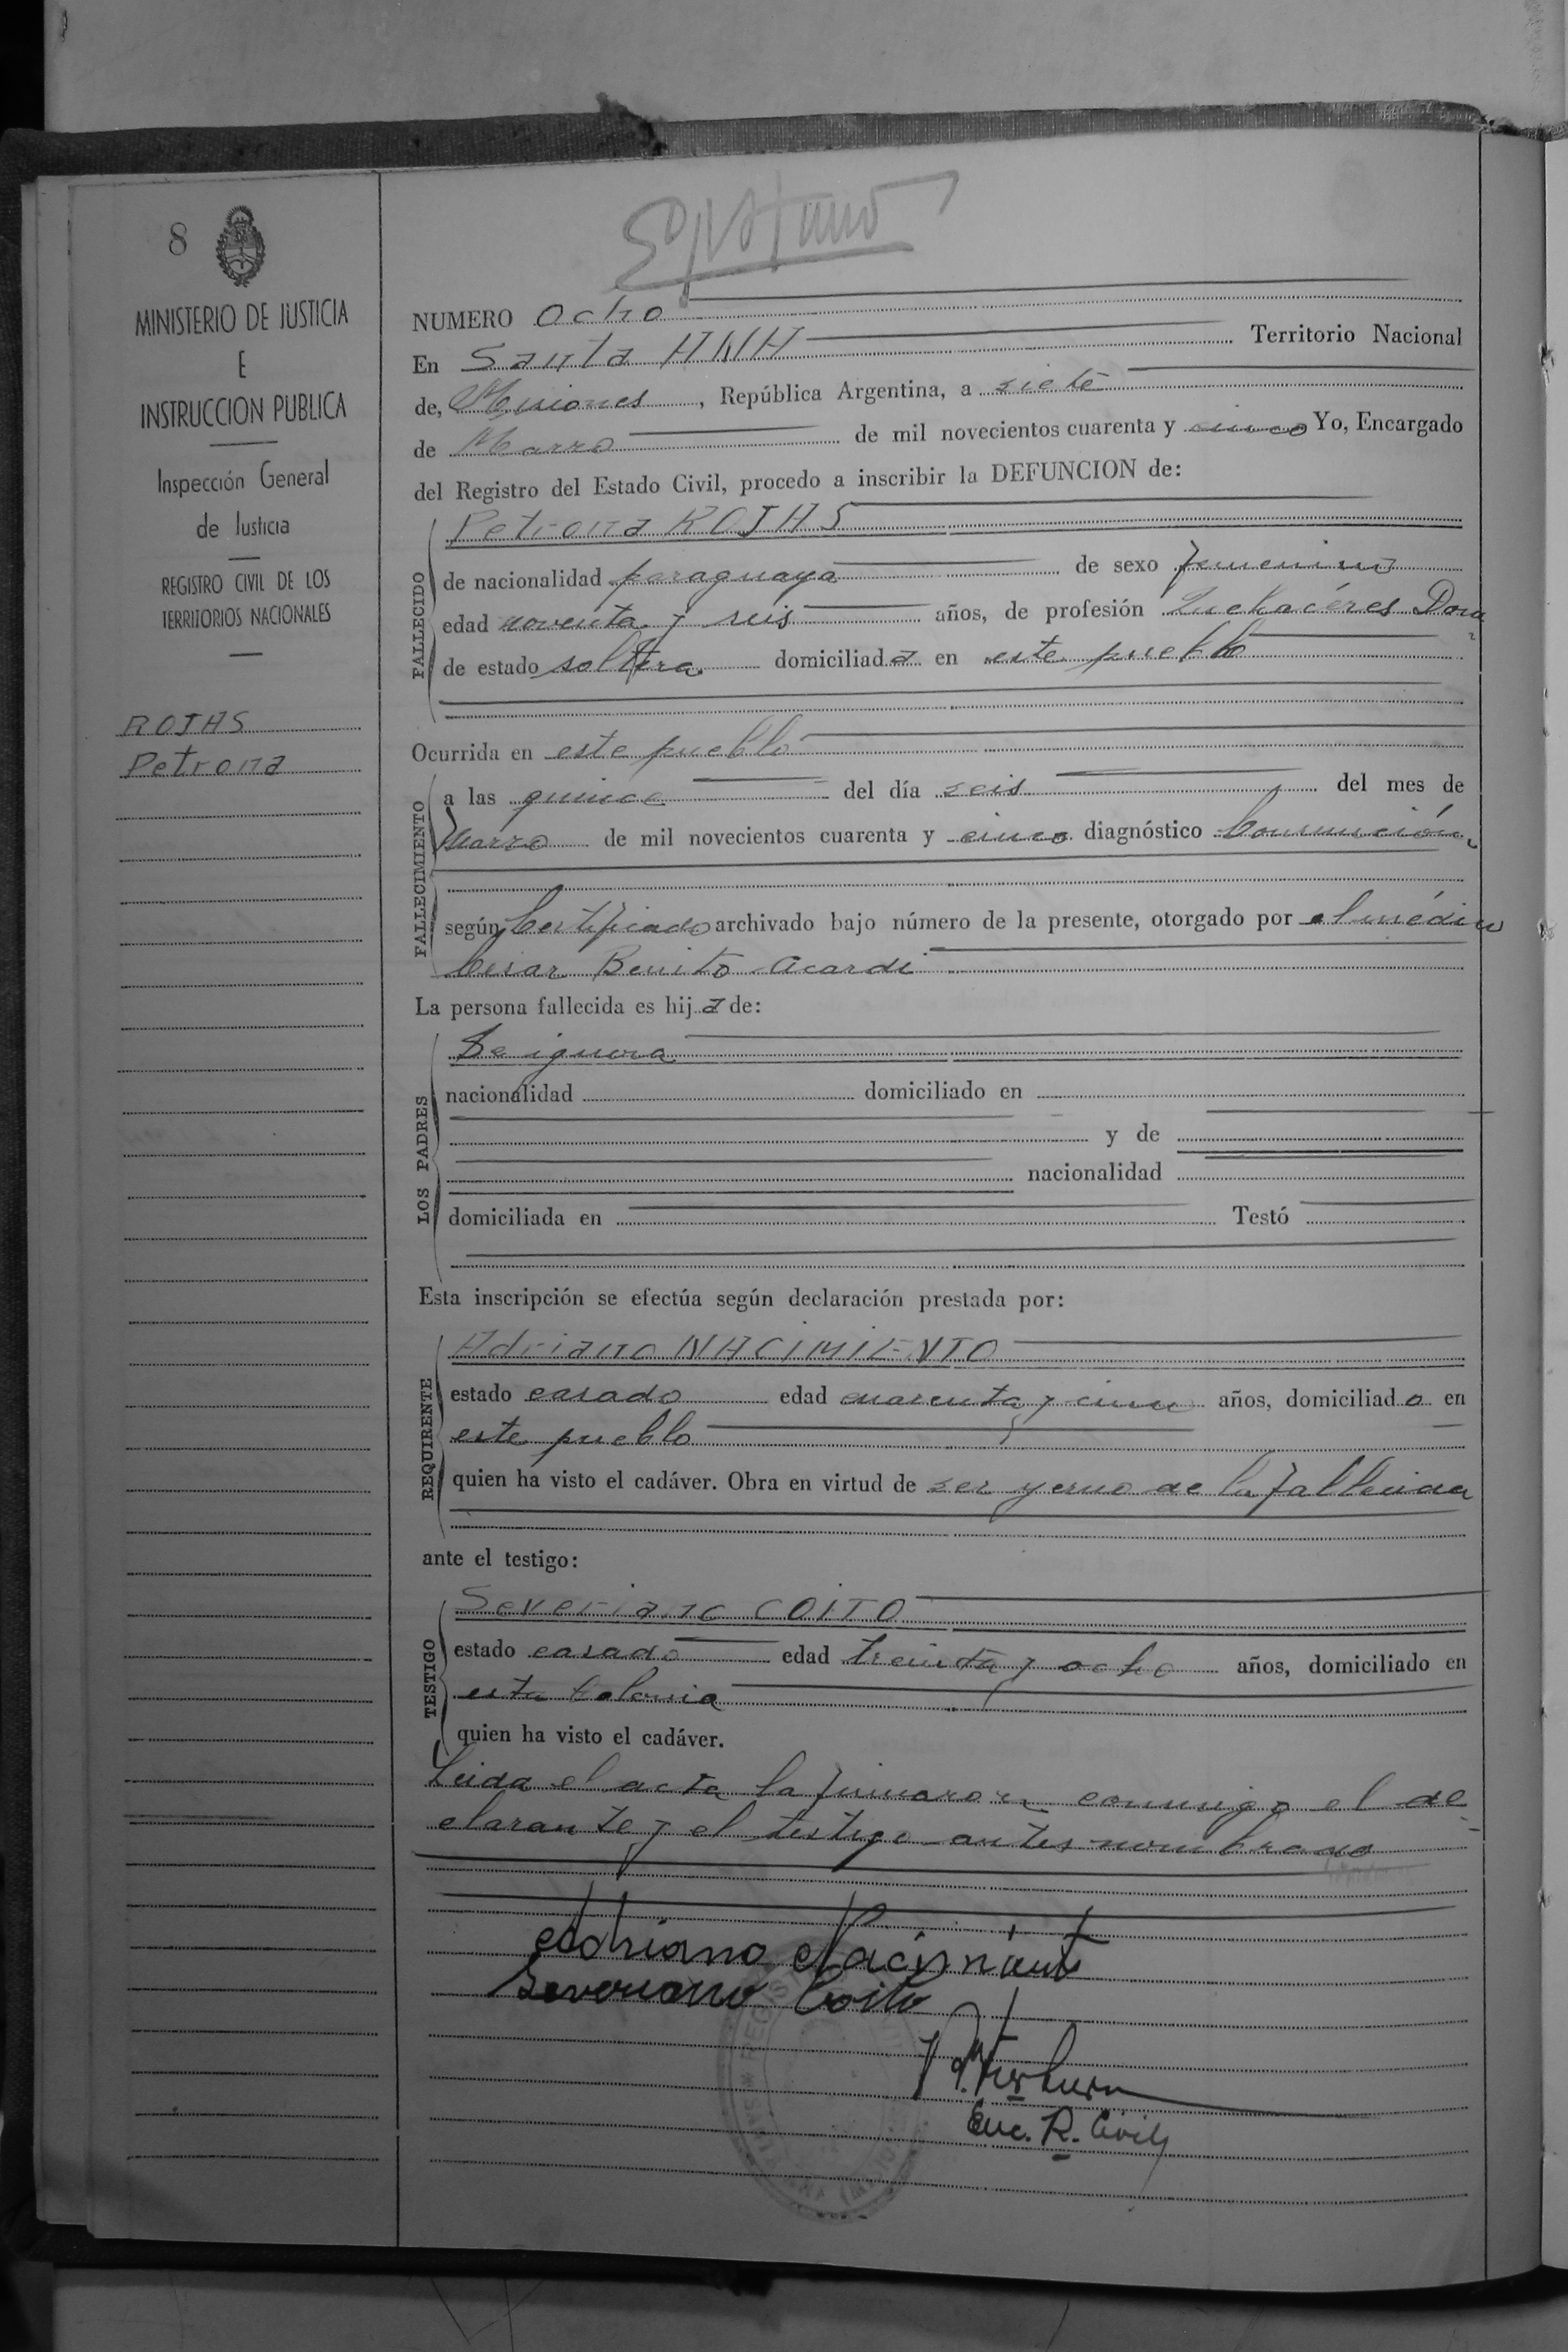 8
MINISTERIO DE JUSTICIA
E
INSTRUCCION PUBLICA
Inspección General
de Justicia
REGISTRO CIVIL DE LOS
TERRITORIOS NACIONALES
ROJAS
Petrona
NUMERO Ocho
En Santa ANA Territorio Nacional
de, Misiones, República Argentina, a siete
de Marzo de mil novecientos cuarenta y cinco Yo, Encargado
del Registro del Estado Civil, procedo a inscribir la DEFUNCION de:
FALLECIDO
Petrona ROJAS
de nacionalidad paraguaya de sexo femenino
edad noventa y seis años, de profesión
de estado soltera domiciliada en este pueblo
Ocurrida en este pueblo
FALLECIMIENTO
a las quince del día seis del mes de
Marzo de mil novecientos cuarenta y cinco diagnóstico Consunción
según Certificado archivado bajo número de la presente, otorgado por el médico
Cesar Benito Acardi
La persona fallecida es hija de:
LOS PADRES
Se ignora
nacionalidad domiciliado en
y de
nacionalidad
domiciliada en Testó
Esta inscripción se efectúa según declaración prestada por:
REQUIRENTE
Adriano NACIMIENTO
estado casado edad cuarenta y cinco años, domiciliado en
este pueblo
quien ha visto el cadáver. Obra en virtud de ser yerno de la fallecida
ante el testigo:
TESTIGO
Severiano COITO
estado casado edad treinta y ocho años, domiciliado en
esta Colonia
quien ha visto el cadáver.
Leida el acta la firmaron conmigo el de-
clarante y el testigo antes nombrado
Adriano Nacimiento
Severiano Coito
Enc. R. Civil